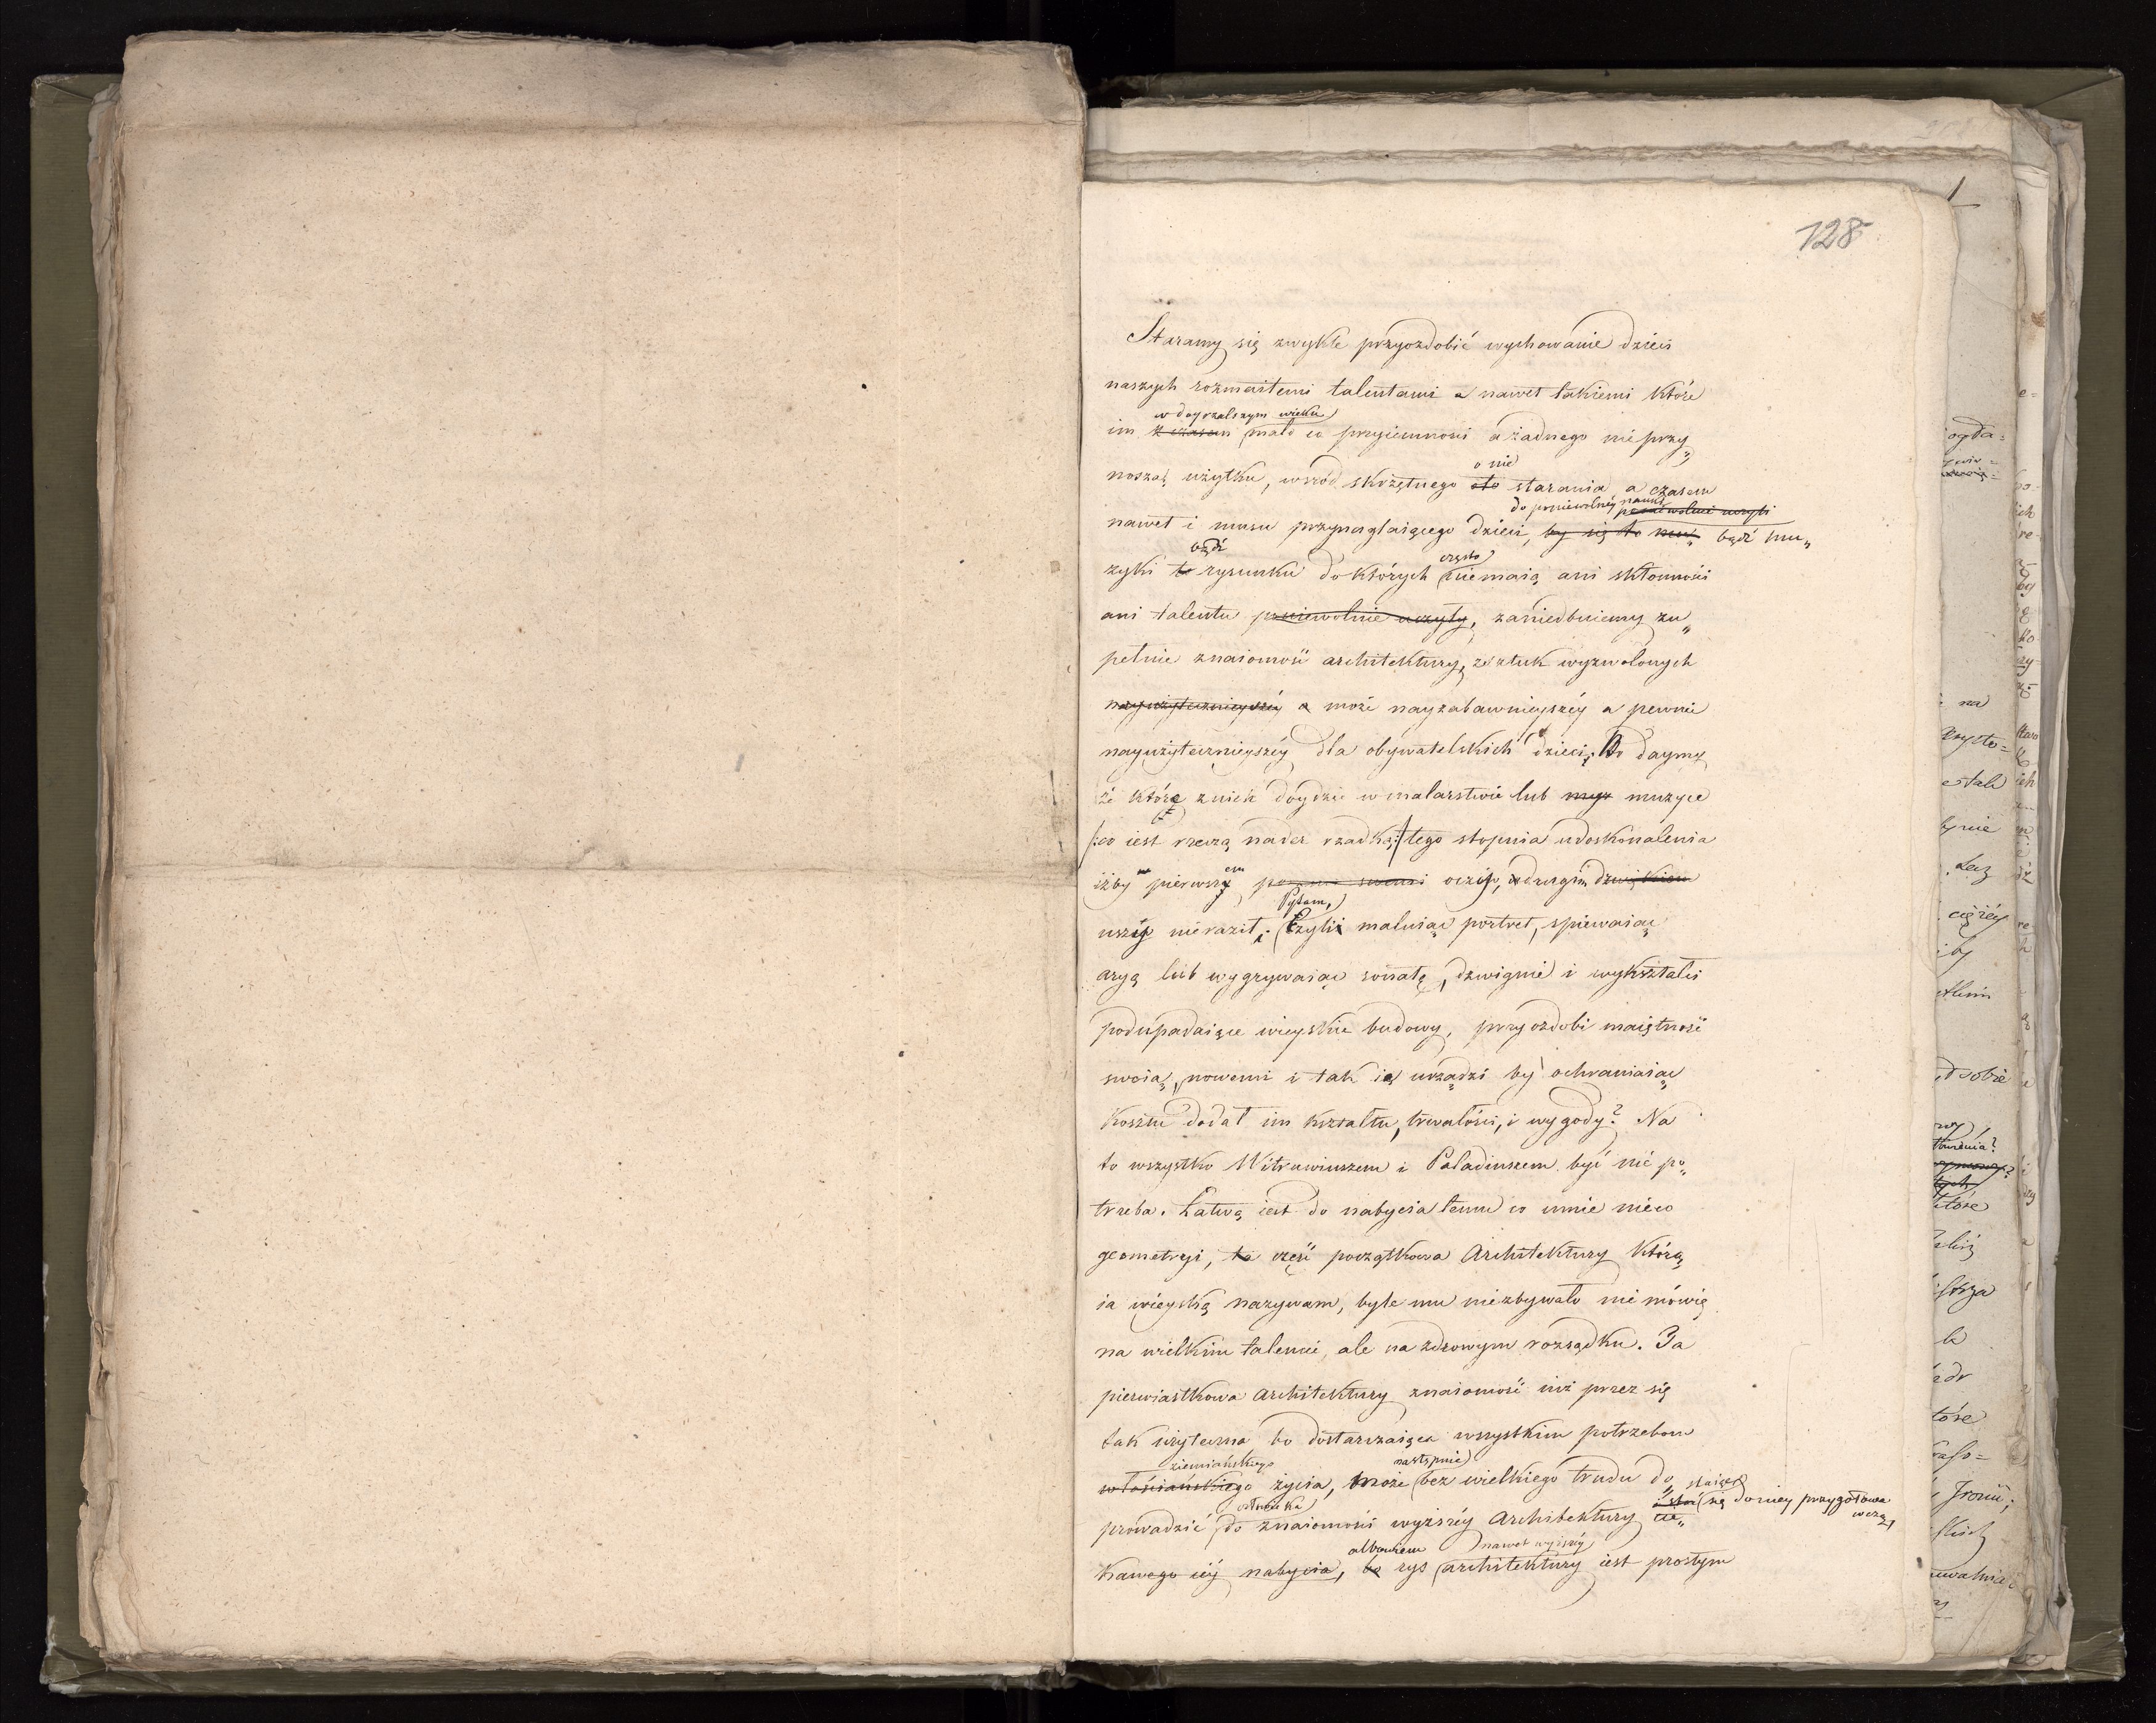 128
Staramy się zwykle przyozdobić wychowanie dzieci
naszych rozmaitemi talentami a nawet takiemi które
w doyrzalszym wieku
im z czasem mało co przyiemności a żadnego nie przy„
o nie
noszą użytku, wsród skrzętnego oto starania a czasem
do poniewolnéy nauki poniewolnie uczyli
nawet i musu przynaglaiącego dzieci, by się to mu„ bądź mu„
bądź często
zyki to rysunku do których nie maią ani skłonności
ani talentu poniewolnie uczyły, zaniedbuiemy zu„
pełnie znaiomość architektury, ze sztuk wyzwolonych
nayużytecznieyszéy a może nayzabawnieyszéy a pewnie
nayużytecznieyszéy dla obywatelskich dzieci; Bo daymy
że które z nich doydzie w malarstwie lub muzyce
/:co iest rzeczą nader rzadką:/ tego stopnia udoskonalenia
iżby pierwszem oczy, drugim dzwiękiem
Pytam,
uszy nie raził; Czyli maluiąc portret, spiewaiąc
aryą lub wygrywaiąc sonatę, dzwignie i wykształci
podupadaiące wieyskie budowy, przyozdobi maiętność
swoią, nowemi i tak ią urządzi by ochraniaiąc
kosztu dodał im kształtu, trwałości, i wygody? Na
to wszystko Witruwiuszem i Paladiuszem być nie po„
trzeba. Łatwą iest do nabycia temu co umie nieco
geometryi, ta część początkowa Architektury którą
ia wieyską nazywam, byle mu niezbywało nie mówię
na wielkim talencie, ale na zdrowym rozsądku. Ta
pierwiastkowa Architektury znaiomość iuż przez się
tak użyteczna bo dostarczaiąca wszystkim potrzebom
ziemiańskiego następnie
włościańskiego życia, może bez wielkiego trudu do„
staiąc się do niey przygotowawczą,
prowadzić do znaiomości wyższéy Architektury cie„
albowiem nawet wyższéy
kawego iéy nabycia, bo rys architektury iest prostym